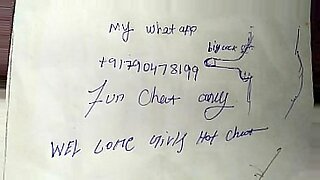 My what app
big cock
+91790478199
Fun Chat only
WEL COME girls Hot Chat